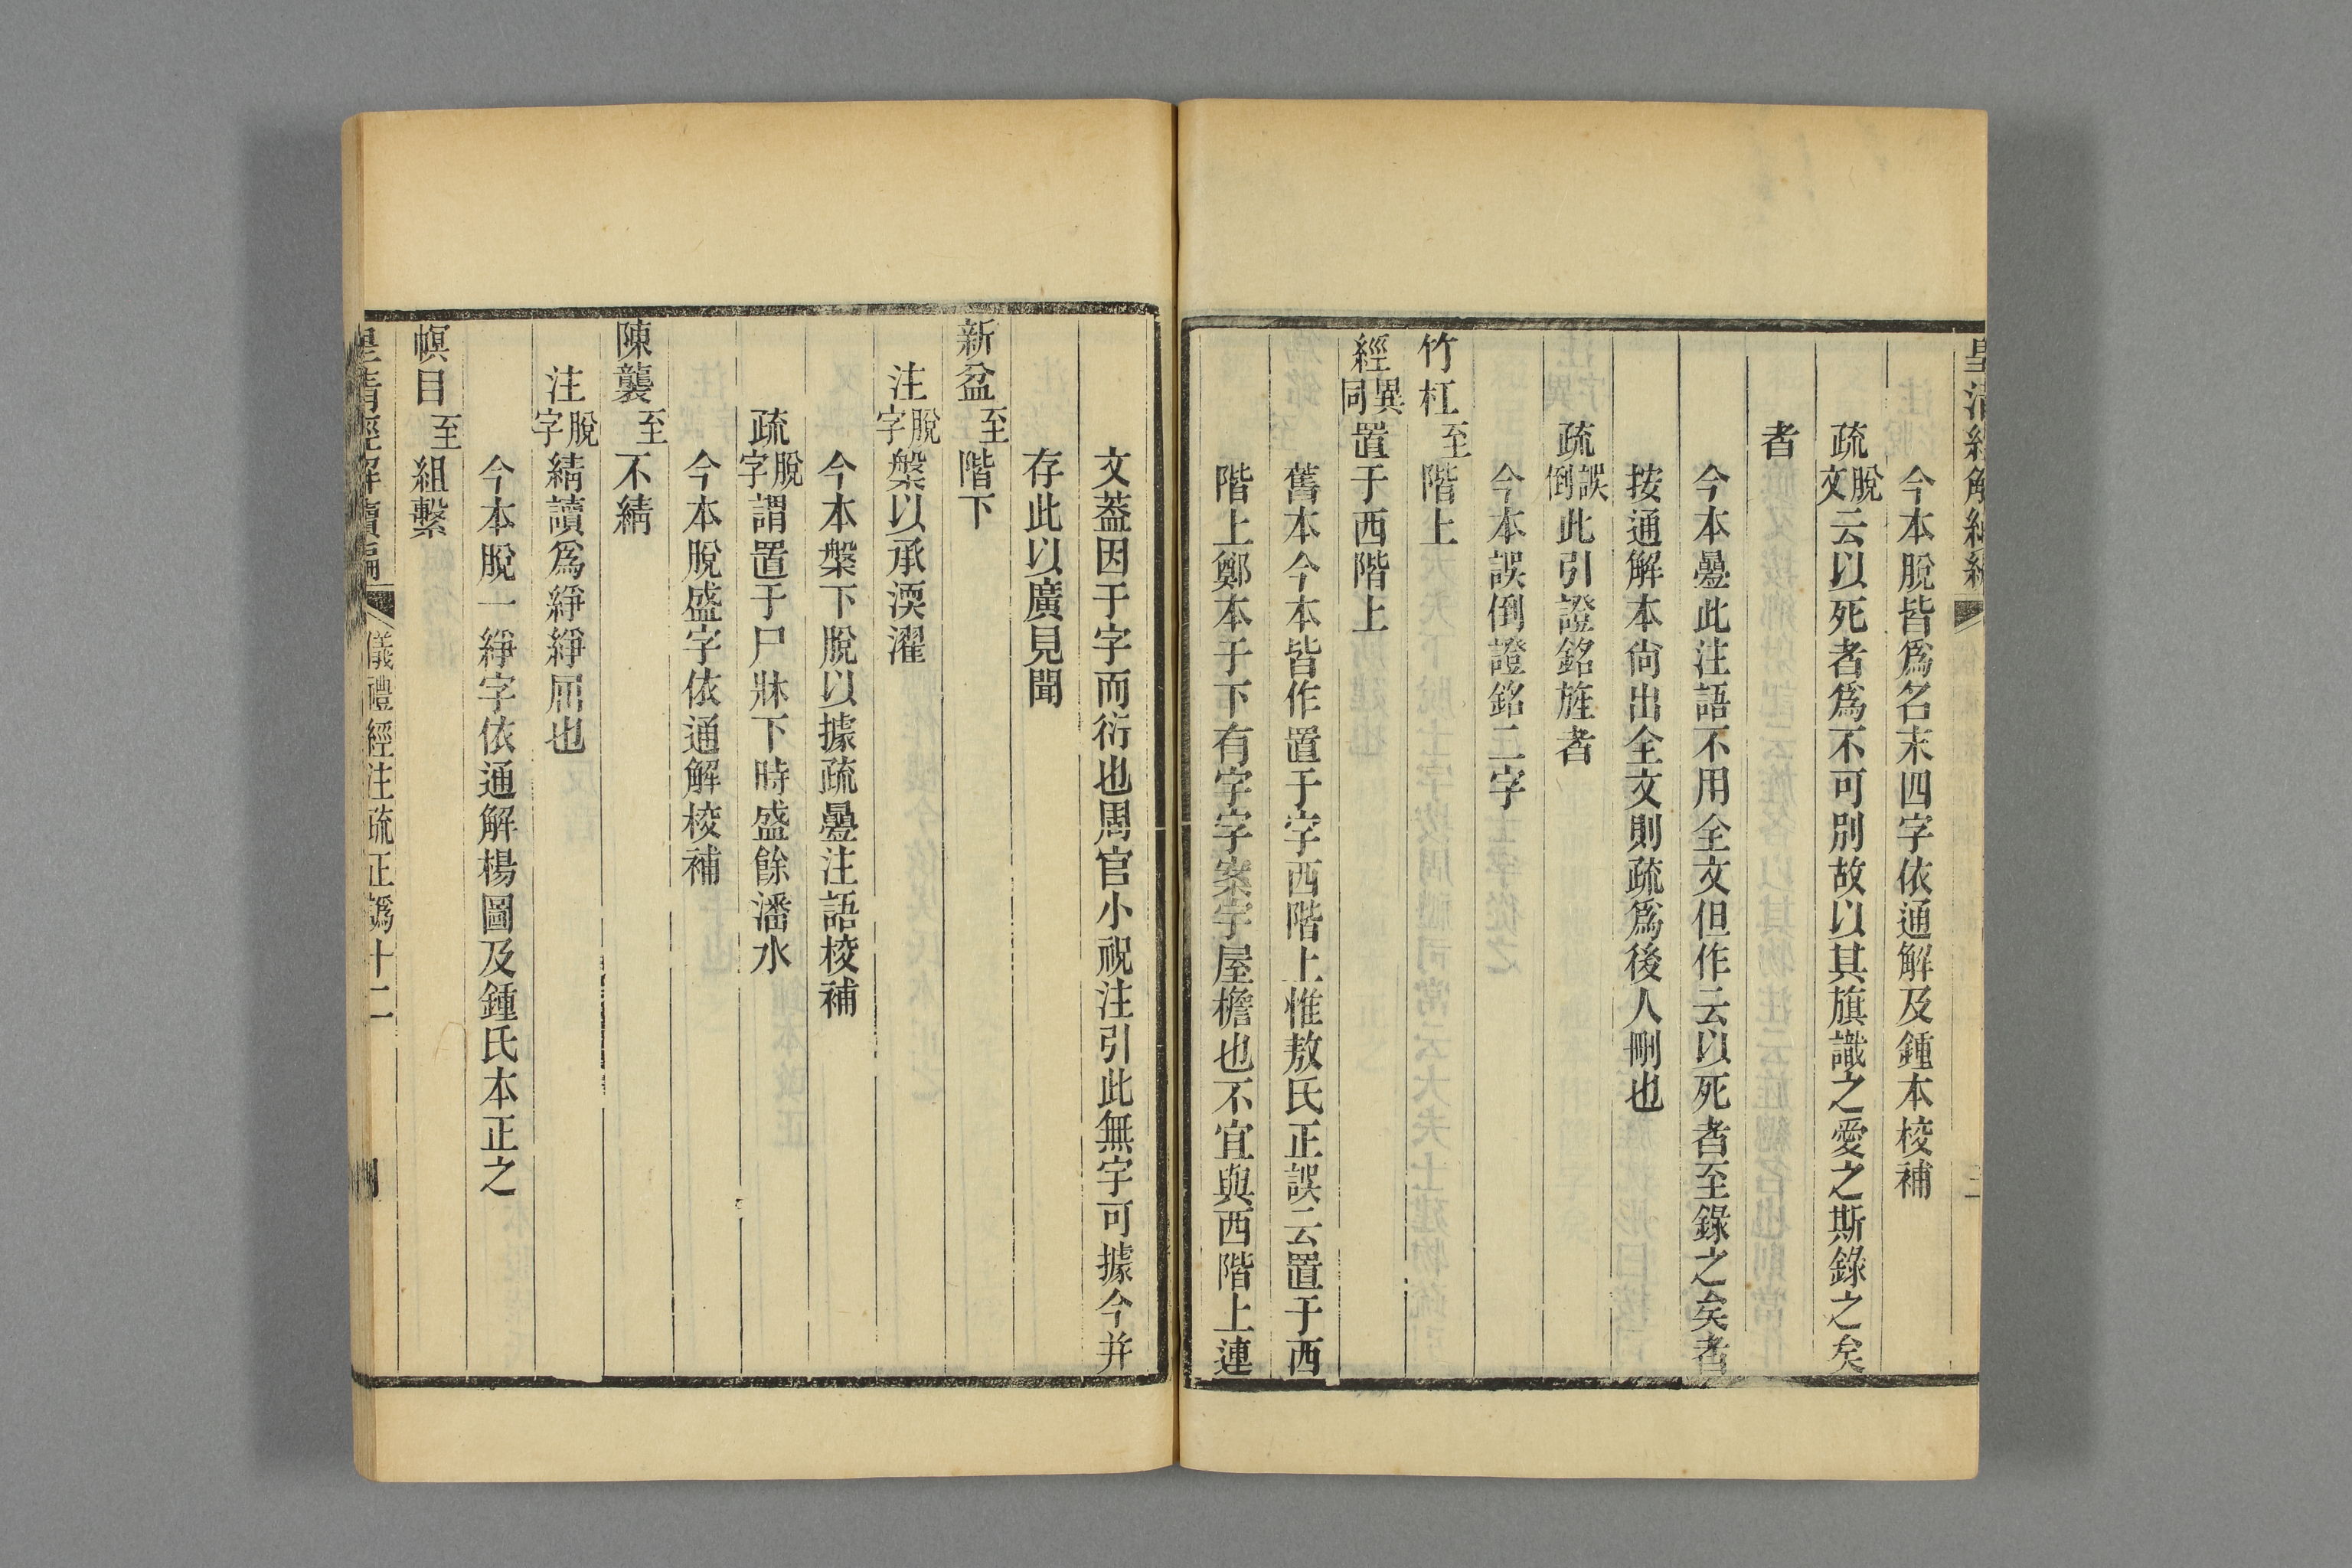 今本脫皆爲名末四字依通解及鍾本校補
疏脫文云以死者爲不可別故以其旗識之愛之斯錄之矣
者
今本疊此注語不用全文但作云以死者至錄之矣者
按通解本尙出全文則疏爲後人刪也
疏誤倒此引證銘旌者
今本誤倒證銘二字
竹杠至階上
經異同置于西階上
舊本今本皆作置于宇西階上惟敖氏正誤云置于西
階上鄭本于下有宇字案宇屋檐也不宜與西階上連
文蓋因于字而衍也周官小祝注引此無宇可據今并
存此以廣見聞
新盆至階下
注脫字槃以承渜濯
今本槃下脫以據疏疊注語校補
疏脫字謂置于尸牀下時盛餘潘水
今本脫盛字依通解校補
陳襲至不綪
注脫字綪讀爲絣絣屈也
今本脫一絣字依通解楊圖及鍾氏本正之
幎目至組繫
皇清經解續編 儀禮經注疏正譌十二